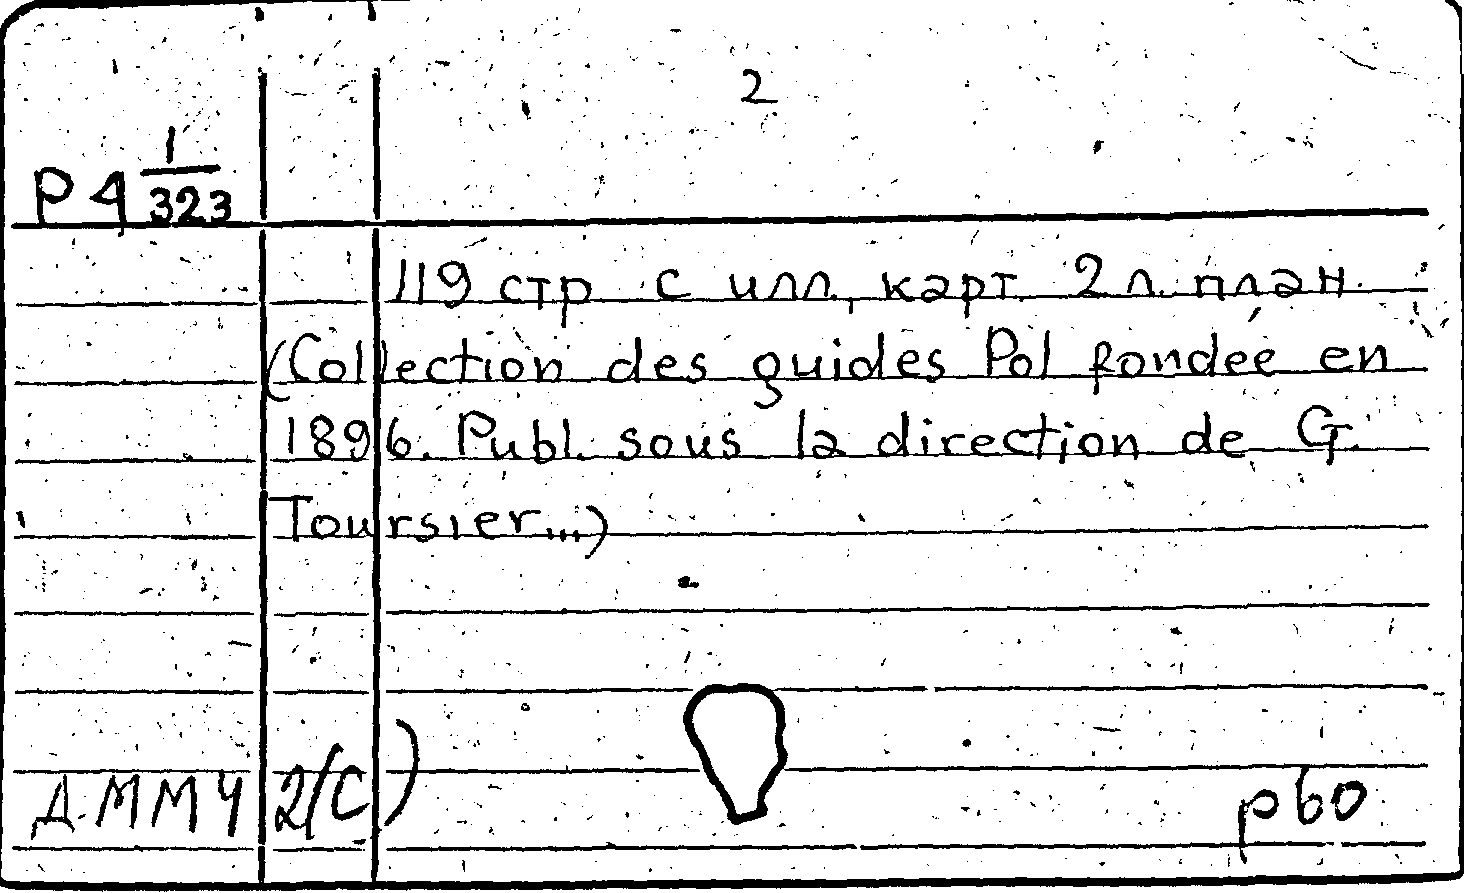 2
P4 1/323
119 стр. с илл., карт. 2 л. план.
(Collection des guides Pol fondée en
1896. Publ. sous la direction de G.
Toursier...)
Д-ММЧ 2(С)
р60